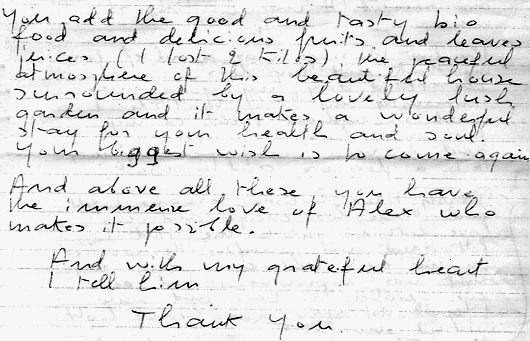 You add the good and tasty bio
food and delicious fruits and leaves
juices (I lost 2 kilos) the peaceful
atmosphere of this beautiful house
surrounded by a lovely lush
garden and it makes a wonderful
stay for your health and soul.
Your biggest wish is to come again
And above all these you have
the immense love of Alex who
makes it possible.
And with my grateful heart
I tell him
Thank You.